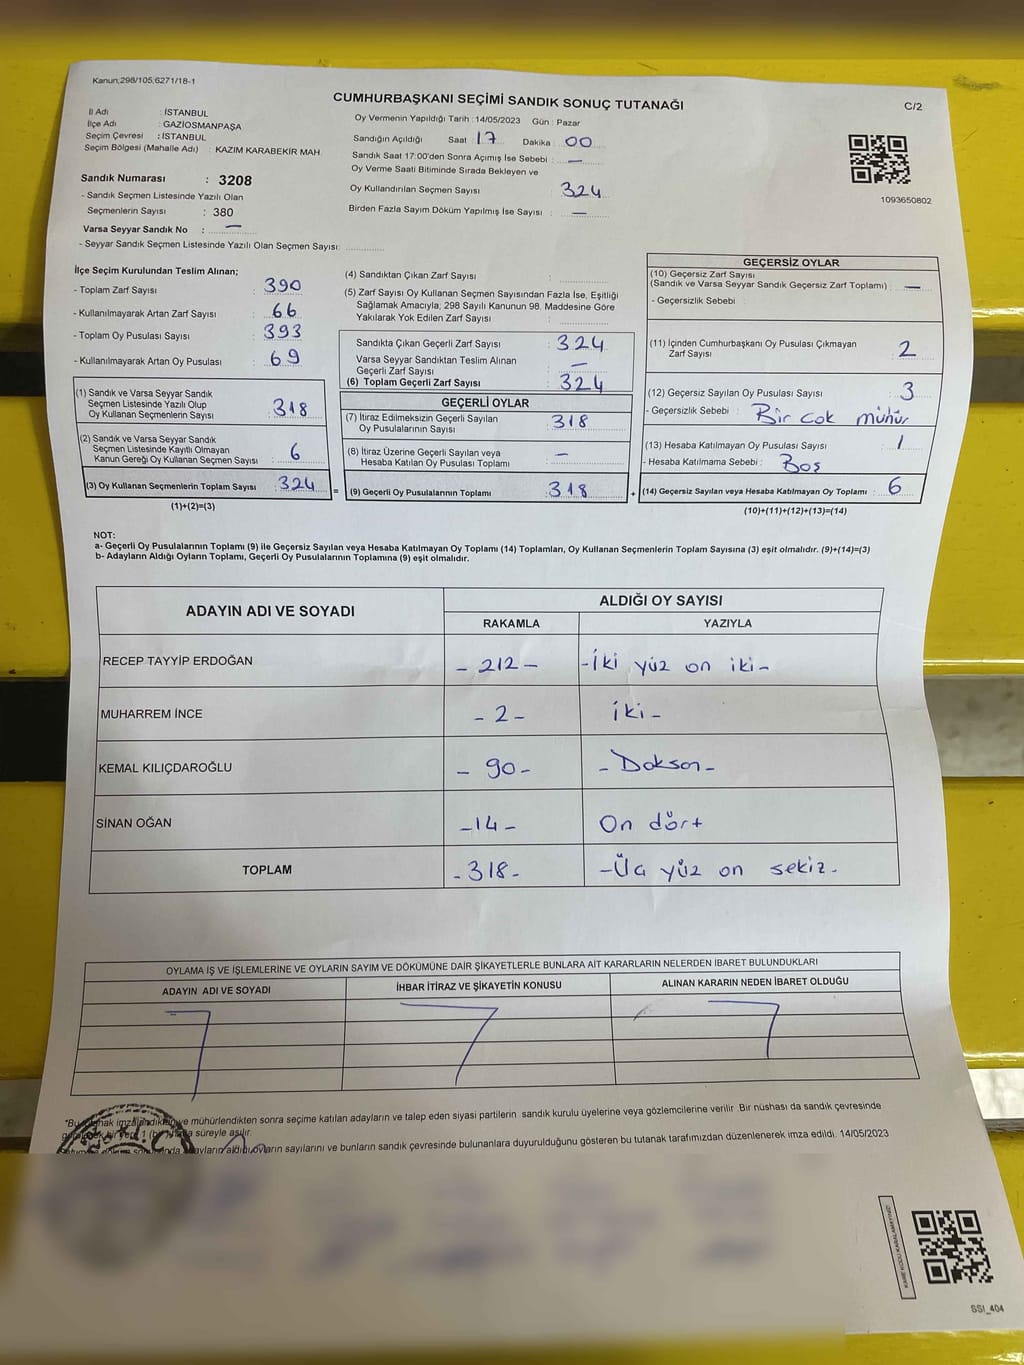 Kanun;298/105,6271/18-1
CUMHURBAŞKANI SEÇİMİ SANDIK SONUÇ TUTANAĞI
C/2
İl Adı : İSTANBUL
İlçe Adı : GAZİOSMANPAŞA
Seçim Çevresi : İSTANBUL
Seçim Bölgesi (Mahalle Adı) : KAZIM KARABEKİR MAH.
Sandık Numarası : 3208
- Sandık Seçmen Listesinde Yazılı Olan
Seçmenlerin Sayısı : 380
Varsa Seyyar Sandık No : —
- Seyyar Sandık Seçmen Listesinde Yazılı Olan Seçmen Sayısı:
Oy Vermenin Yapıldığı Tarih : 14/05/2023 Gün : Pazar
Sandığın Açıldığı Saat : 17 Dakika : 00
Sandık Saat 17:00'den Sonra Açımış İse Sebebi : —
Oy Verme Saati Bitiminde Sırada Bekleyen ve
Oy Kullandırılan Seçmen Sayısı : 324
Birden Fazla Sayım Döküm Yapılmış İse Sayısı : —
1093650802
İlçe Seçim Kurulundan Teslim Alınan;
- Toplam Zarf Sayısı : 390
- Kullanılmayarak Artan Zarf Sayısı : 66
- Toplam Oy Pusulası Sayısı : 393
- Kullanılmayarak Artan Oy Pusulası : 69
(1) Sandık ve Varsa Seyyar Sandık
Seçmen Listesinde Yazılı Olup
Oy Kullanan Seçmenlerin Sayısı : 318
(2) Sandık ve Varsa Seyyar Sandık
Seçmen Listesinde Kayıtlı Olmayan
Kanun Gereği Oy Kullanan Seçmen Sayısı : 6
(3) Oy Kullanan Seçmenlerin Toplam Sayısı : 324
(1)+(2)=(3)
(4) Sandıktan Çıkan Zarf Sayısı :
(5) Zarf Sayısı Oy Kullanan Seçmen Sayısından Fazla İse, Eşitliği
Sağlamak Amacıyla; 298 Sayılı Kanunun 98. Maddesine Göre
Yakılarak Yok Edilen Zarf Sayısı :
Sandıkta Çıkan Geçerli Zarf Sayısı : 324
Varsa Seyyar Sandıktan Teslim Alınan
Geçerli Zarf Sayısı : —
(6) Toplam Geçerli Zarf Sayısı : 324
GEÇERLİ OYLAR
(7) İtiraz Edilmeksizin Geçerli Sayılan
Oy Pusulalarının Sayısı : 318
(8) İtiraz Üzerine Geçerli Sayılan veya
Hesaba Katılan Oy Pusulası Toplamı : —
= (9) Geçerli Oy Pusulalarının Toplamı : 318 +
GEÇERSİZ OYLAR
(10) Geçersiz Zarf Sayısı
(Sandık ve Varsa Seyyar Sandık Geçersiz Zarf Toplamı) : —
- Geçersizlik Sebebi :
(11) İçinden Cumhurbaşkanı Oy Pusulası Çıkmayan
Zarf Sayısı : 2
(12) Geçersiz Sayılan Oy Pusulası Sayısı : 3
- Geçersizlik Sebebi : Bir çok mühür
(13) Hesaba Katılmayan Oy Pusulası Sayısı : 1
- Hesaba Katılmama Sebebi : Boş
(14) Geçersiz Sayılan veya Hesaba Katılmayan Oy Toplamı : 6
(10)+(11)+(12)+(13)=(14)
NOT:
a- Geçerli Oy Pusulalarının Toplamı (9) ile Geçersiz Sayılan veya Hesaba Katılmayan Oy Toplamı (14) Toplamları, Oy Kullanan Seçmenlerin Toplam Sayısına (3) eşit olmalıdır. (9)+(14)=(3)
b- Adayların Aldığı Oyların Toplamı, Geçerli Oy Pusulalarının Toplamına (9) eşit olmalıdır.
ADAYIN ADI VE SOYADI
ALDIĞI OY SAYISI
RAKAMLA YAZIYLA
RECEP TAYYİP ERDOĞAN - 212 - - İki yüz on iki -
MUHARREM İNCE - 2 - İki -
KEMAL KILIÇDAROĞLU - 90 - - Doksan -
SİNAN OĞAN - 14 - On dört
TOPLAM - 318 - - Üç yüz on sekiz -
OYLAMA İŞ VE İŞLEMLERİNE VE OYLARIN SAYIM VE DÖKÜMÜNE DAİR ŞİKAYETLERLE BUNLARA AİT KARARLARIN NELERDEN İBARET BULUNDUKLARI
ADAYIN ADI VE SOYADI İHBAR İTİRAZ VE ŞİKAYETİN KONUSU ALINAN KARARIN NEDEN İBARET OLDUĞU
ve mühürlendikten sonra seçime katılan adayların ve talep eden siyasi partilerin sandık kurulu üyelerine veya gözlemcilerine verilir. Bir nüshası da sandık çevresinde
süreyle asılır.
oyların sayılarını ve bunların sandık çevresinde bulunanlara duyurulduğunu gösteren bu tutanak tarafımızdan düzenlenerek imza edildi. 14/05/2023
KARE KODU KARALAMAYINIZ!
SSI_404